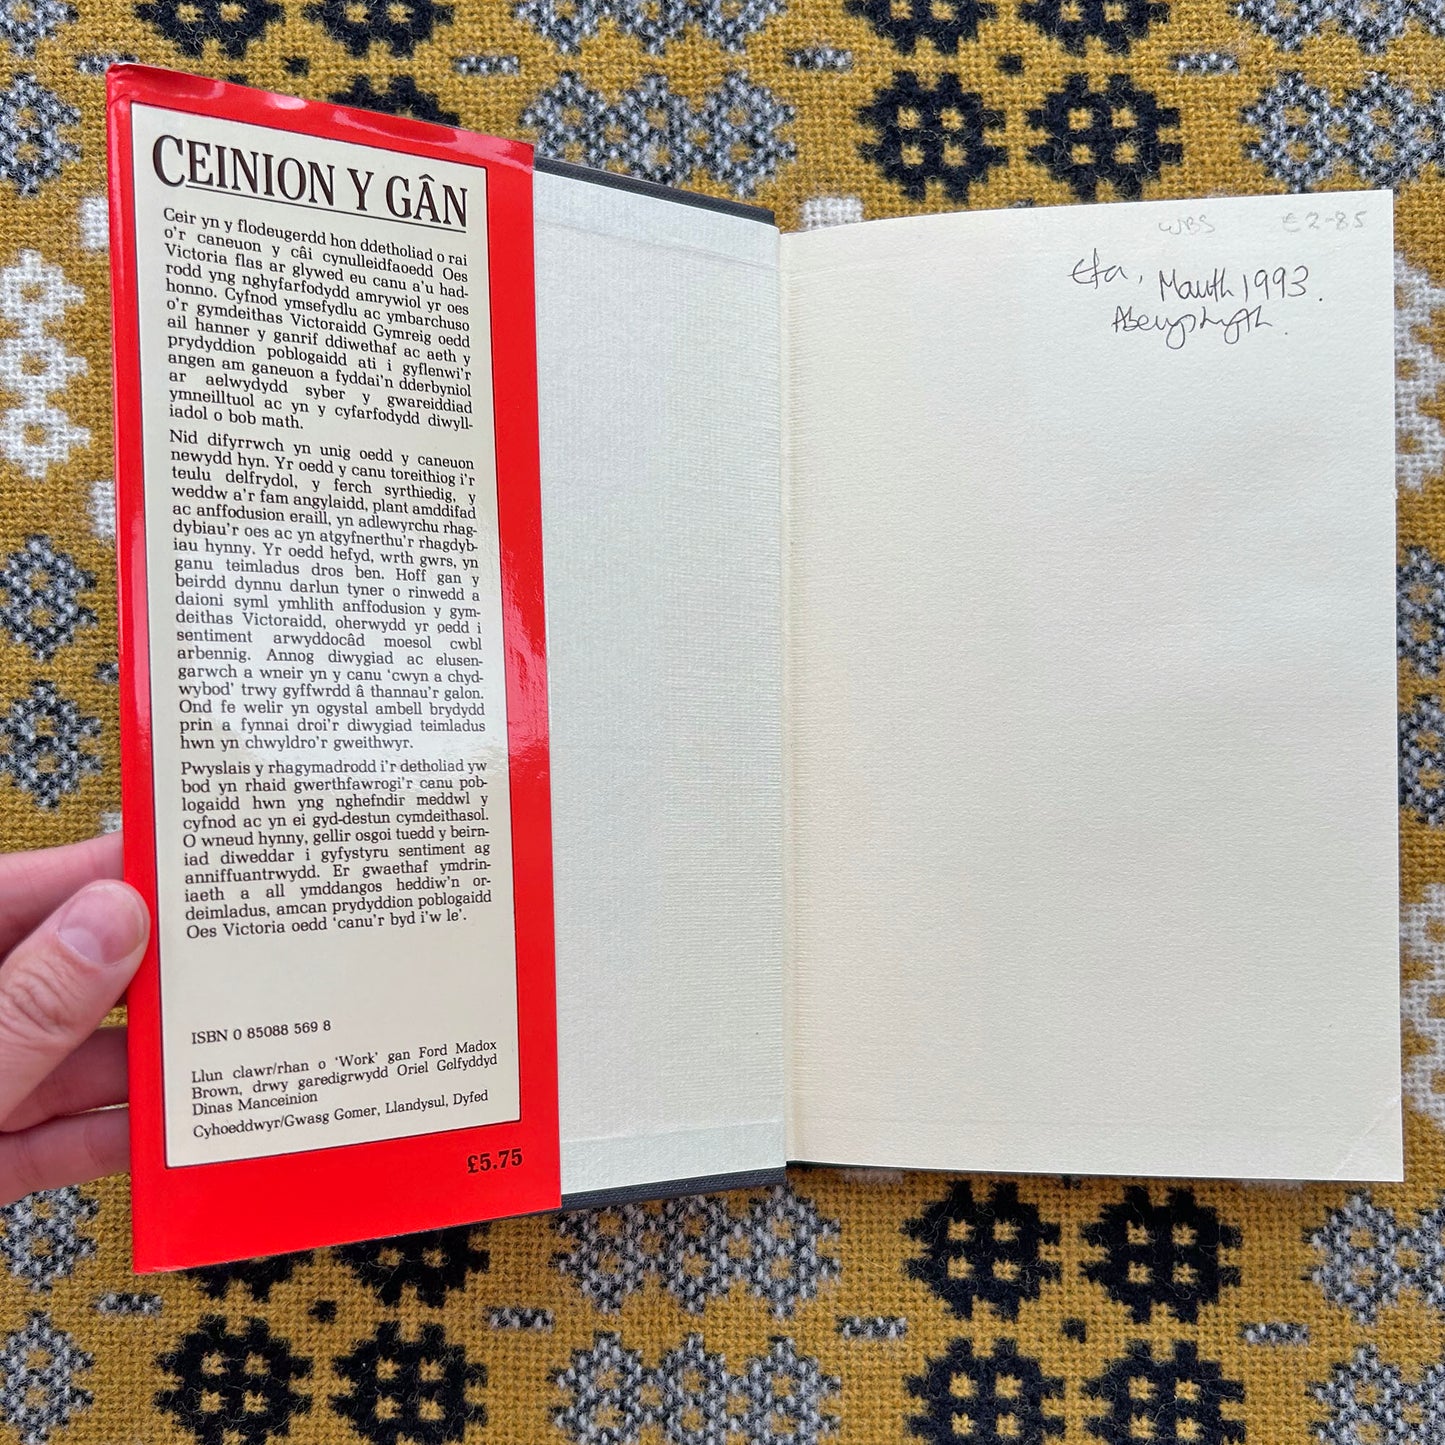 CEINION Y GÂN
Ceir yn y flodeugerdd hon ddetholiad o rai
o'r caneuon y câi cynulleidfaoedd Oes
Victoria flas ar glywed eu canu a'u had-
rodd yng nghyfarfodydd amrywiol yr oes
honno. Cyfnod ymsefydlu ac ymbarchuso
o'r gymdeithas Victoraidd Gymreig oedd
ail hanner y ganrif ddiwethaf ac aeth y
prydyddion poblogaidd ati i gyflenwi'r
angen am ganeuon a fyddai'n dderbyniol
ar aelwydydd syber y gwareiddiad
ymneilltuol ac yn y cyfarfodydd diwyll-
iadol o bob math.
Nid difyrrwch yn unig oedd y caneuon
newydd hyn. Yr oedd y canu toreithiog i'r
teulu delfrydol, y ferch syrthiedig, y
weddw a'r fam angylaidd, plant amddifad
ac anffodusion eraill, yn adlewyrchu rhag-
dybiau'r oes ac yn atgyfnerthu'r rhagdyb-
iau hynny. Yr oedd hefyd, wrth gwrs, yn
ganu teimladus dros ben. Hoff gan y
beirdd dynnu darlun tyner o rinwedd a
daioni syml ymhlith anffodusion y gym-
deithas Victoraidd, oherwydd yr oedd i
sentiment arwyddocâd moesol cwbl
arbennig. Annog diwygiad ac elusen-
garwch a wneir yn y canu 'cwyn a chyd-
wybod' trwy gyffwrdd â thannau'r galon.
Ond fe welir yn ogystal ambell brydydd
prin a fynnai droi'r diwygiad teimladus
hwn yn chwyldro'r gweithwyr.
Pwyslais y rhagymadrodd i'r detholiad yw
bod yn rhaid gwerthfawrogi'r canu pob-
logaidd hwn yng nghefndir meddwl y
cyfnod ac yn ei gyd-destun cymdeithasol.
O wneud hynny, gellir osgoi tuedd y beirn-
iad diweddar i gyfystyru sentiment ag
anniffuantrwydd. Er gwaethaf ymdrin-
iaeth a all ymddangos heddiw'n or-
deimladus, amcan prydyddion poblogaidd
Oes Victoria oedd 'canu'r byd i'w le'.
ISBN 0 85088 569 8
Llun clawr/rhan o 'Work' gan Ford Madox
Brown, drwy garedigrwydd Oriel Gelfyddyd
Dinas Manceinion
Cyhoeddwyr/Gwasg Gomer, Llandysul, Dyfed
£5.75
WBS £2-85
Efa, Mawrth 1993.
Aberystwyth.